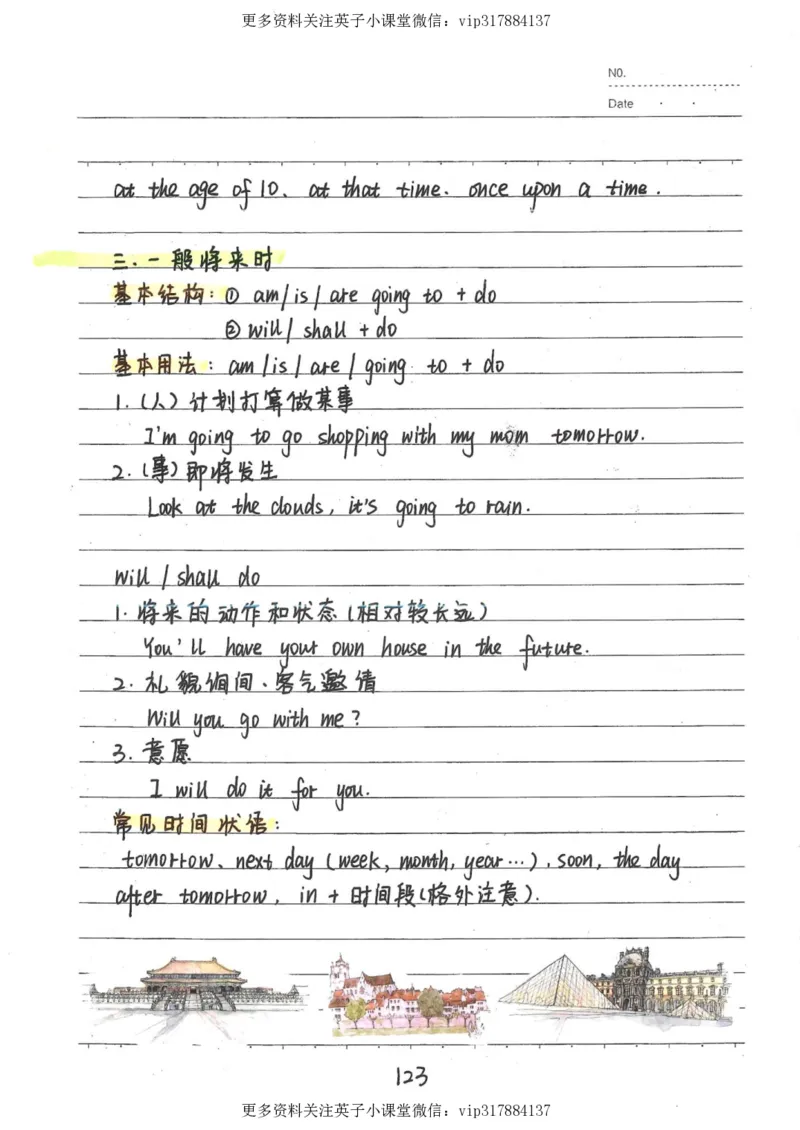 更多资料关注英子小课堂微信：vip317884137
NO.
Date
at the age of 10、at that time、once upon a time.
三.一般将来时
基本结构：① am/is/are going to + do
② will/shall + do
基本用法：am/is/are/going to + do
1.(人)计划打算做某事
I'm going to go shopping with my mom tomorrow.
2.(事)即将发生
Look at the clouds, it's going to rain.
will/shall do
1.将来的动作和状态(相对较长远)
You'll have your own house in the future.
2.礼貌询问、客气邀请
Will you go with me?
3.意愿
I will do it for you.
常见时间状语：
tomorrow、next day (week, month, year…)、soon, the day
after tomorrow, in + 时间段(格外注意).
123
更多资料关注英子小课堂微信：vip317884137